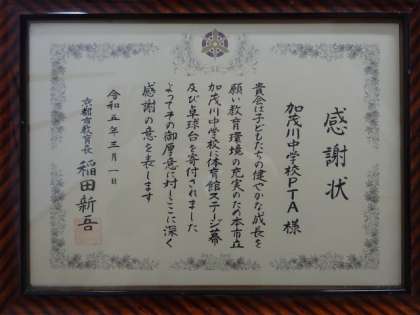 感謝状
加茂川中学校PTA 様
貴会は子どもたちの健やかな成長を
願い教育環境の充実のため本市立
加茂川中学校に体育館ステージ幕
及び卓球台を寄付されました
よってその御厚意に対しここに深く
感謝の意を表します
令和五年三月一日
京都市教育長 稲田新吾